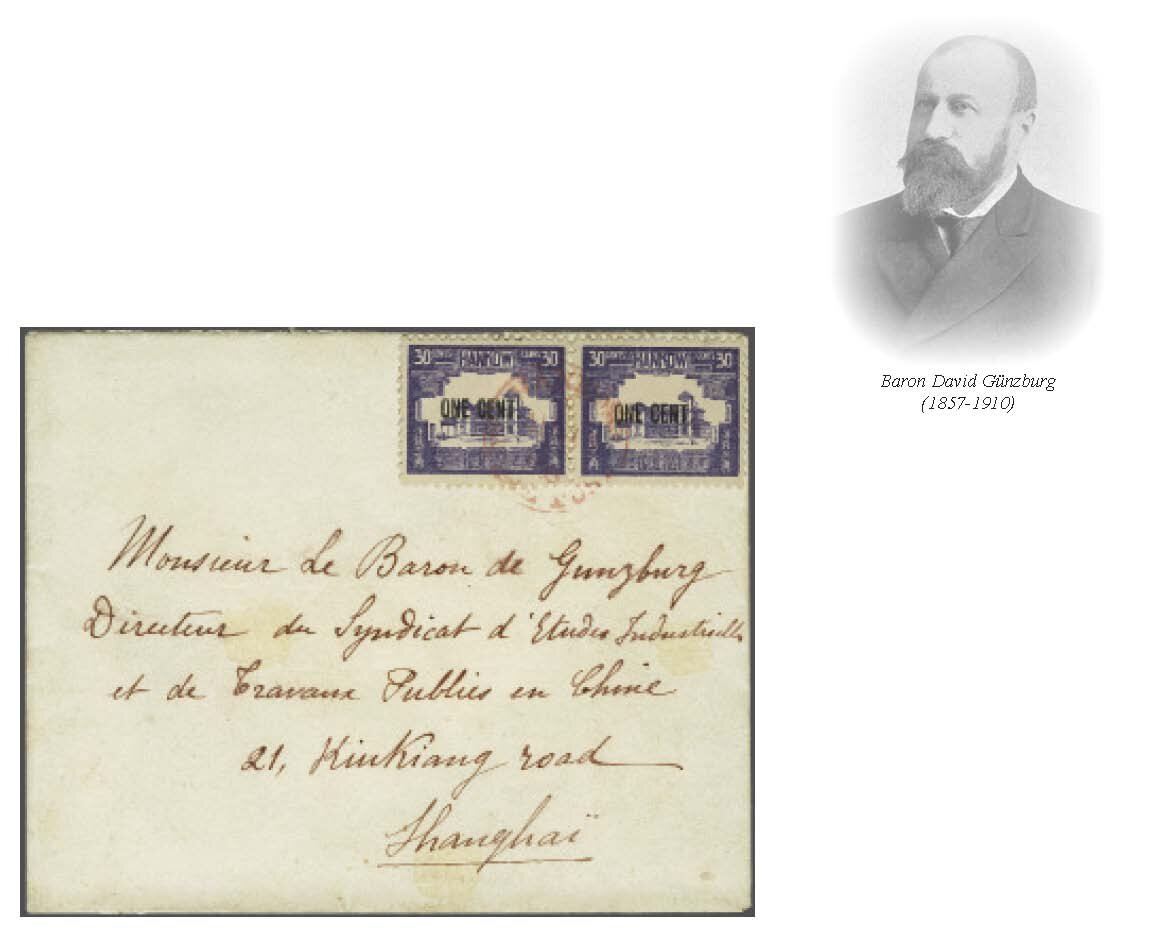 Baron David Günzburg
(1857-1910)
30 HANKOW 30
ONE CENT
30 HANKOW 30
ONE CENT
Monsieur Le Baron de Gunzburg
Directeur du Syndicat d'Etudes Industrielles
et de Travaux Publics en Chine
21, KiuKiang road
Shanghaï